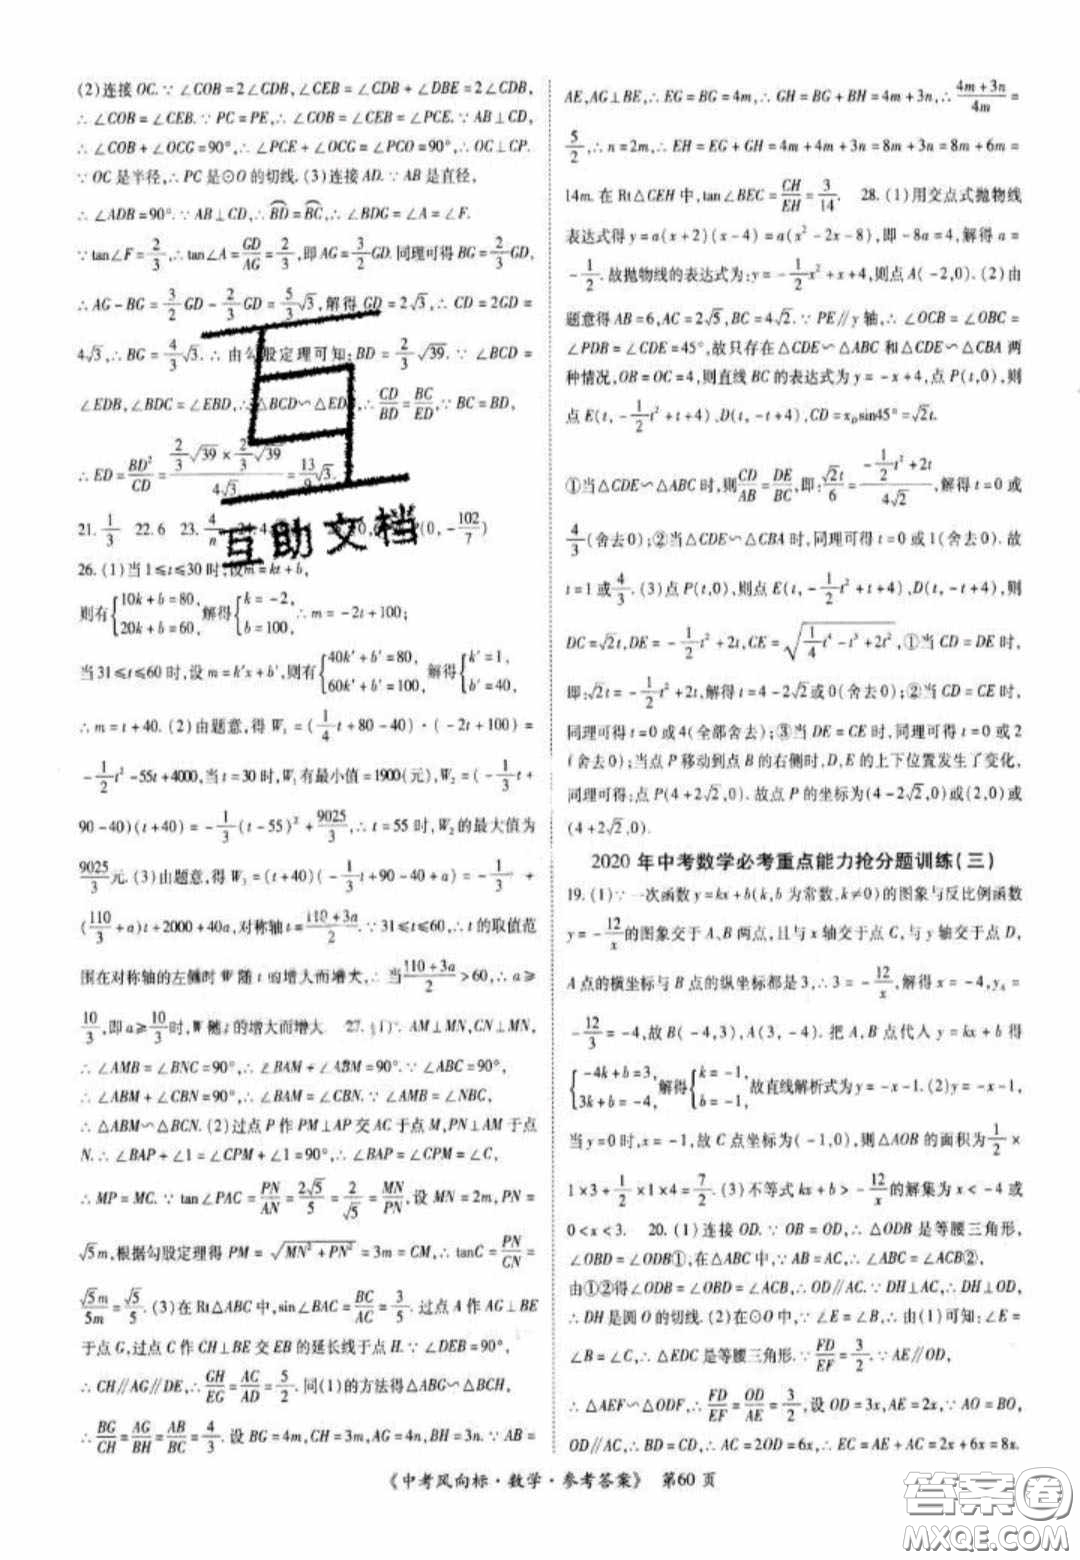 (2)连接 OC.∵∠COB=2∠CDB,∠CEB=∠CDB+∠DBE=2∠CDB,
∴∠COB=∠CEB.∵PC=PE,∴∠CEB=∠PCE.∵AB⊥CD,
∴∠COB+∠OCG=90°,∴∠PCE+∠OCG=∠PCO=90°,∴OC⊥CP.
∵OC 是半径,∴PC 是⊙O 的切线.(3)连接 AD.∵AB 是直径,
∴∠ADB=90°.∵AB⊥CD,∴BD=BC,∴∠BDG=∠A=∠F.
∵tan∠F=2/3,∴tan∠A=GD/AG=2/3,即 AG=3/2GD.同理可得 BG=2/3GD.
∴AG-BG=3/2GD-2/3GD=5/3√3,解得 GD=2√3,∴CD=2GD=
4√3,∴BG=4/3√3.∴由勾股定理可知:BD=2/3√39.∵∠BCD=
∠EDB,∠BDC=∠EBD,∴△BCD∽△EDB,∴CD/BD=BC/ED.∵BC=BD,
∴ED=BD²/CD=(2/3√39×2/3√39)/4√3=13/9√3.
21. 1/3 22. 6 23. 4/n 24. (0,-102/7)
26.(1)当1≤t≤30时,设m=kt+b,
则有{10k+b=80, 20k+b=60,解得{k=-2, b=100,∴m=-2t+100;
当31≤t≤60时,设m=k'x+b',则有{40k'+b'=80, 60k'+b'=100,解得{k'=1, b'=40,
∴m=t+40.(2)由题意,得 W₁=(1/4t+80-40)·(-2t+100)=
-1/2t²-55t+4000,当t=30时,W₁有最小值=1900(元),W₂=(-1/3t+
90-40)(t+40)=-1/3(t-55)²+9025/3,∴t=55时,W₂的最大值为
9025/3元.(3)由题意,得 W₃=(t+40)(-1/3t+90-40+a)=-1/3t²+
(110/3+a)t+2000+40a,对称轴t=(110+3a)/2.∵31≤t≤60,t的取值范
围在对称轴的左侧时 W 随 t 的增大而增大,∴当(110+3a)/2>60,∴a≥
10/3,即a≥10/3时,W 随 t 的增大而增大 27.(1)∵AM⊥MN,CN⊥MN,
∴∠AMB=∠BNC=90°,∴∠BAM+∠ABM=90°.∵∠ABC=90°,
∴∠ABM+∠CBN=90°,∴∠BAM=∠CBN.∵∠AMB=∠NBC,
∴△ABM∽△BCN.(2)过点 P 作 PM⊥AP 交 AC 于点 M,PN⊥于点
N.∴∠BAP+∠1=∠CPM+∠1=90°,∴∠BAP=∠CPM=∠C,
∴MP=MC.∵tan∠PAC=PN/AN=2√5/5=2/√5=MN/PN.设 MN=2m,PN=
√5m,根据勾股定理得 PM=√(MN²+PN²)=3m=CM,∴tanC=PN/CN=
√5m/5m=√5/5.(3)在 Rt△ABC 中,sin∠BAC=BC/AC=3/5.过点 A 作 AG⊥BE
于点 G,过点 C 作 CH⊥BE 交 EB 的延长线于点 H.∵∠DEB=90°,
∴CH∥AG∥DE,∴GH/EG=AC/AD=5/2.同(1)的方法得△ABG∽△BCH,
∴BG/CH=AG/BH=AB/BC=4/3.设 BG=4m,CH=3m,AG=4n,BH=3n.∵AB=
AE,AG⊥BE,∴EG=BG=4m,∴GH=BG+BH=4m+3n,∴(4m+3n)/4m=
5/2,∴n=2m,∴EH=EG+GH=4m+4m+3n=8m+3n=8m+6m=
14m.在 Rt△CEH 中,tan∠BEC=CH/EH=3/14. 28.(1)用交点式抛物线
表达式得 y=a(x+2)(x-4)=a(x²-2x-8),即-8a=4,解得 a=
-1/2.故抛物线的表达式为:y=-1/2x²+x+4,则点 A(-2,0).(2)由
题意得 AB=6,AC=2√5,BC=4√2.∵PE∥y 轴,∴∠OCB=∠OBC=
∠PDB=∠CDE=45°,故只存在△CDE∽△ABC 和△CDE∽△CBA 两
种情况,OB=OC=4,则直线 BC 的表达式为 y=-x+4,点 P(t,0),则
点 E(t,-1/2t²+t+4),D(t,-t+4),CD=x_D sin45°=√2t.
①当△CDE∽△ABC 时,则CD/AB=DE/BC,即:√2t/6=(-1/2t²+2t)/4√2,解得 t=0 或
4/3(舍去0);②当△CDE∽△CBA 时,同理可得 t=0 或 1(舍去0).故
t=1 或4/3.(3)点 P(t,0),则点 E(t,-1/2t²+t+4),D(t,-t+4),则
DC=√2t,DE=-1/2t²+2t,CE=√(1/4t⁴-t³+2t²),①当 CD=DE 时,
即:√2t=-1/2t²+2t,解得 t=4-2√2或0(舍去0);②当 CD=CE 时,
同理可得 t=0 或 4(全部舍去);③当 DE=CE 时,同理可得 t=0 或 2
(舍去0);当点 P 移动到点 B 的右侧时,D,E 的上下位置发生了变化,
同理可得:点 P(4+2√2,0).故点 P 的坐标为(4-2√2,0)或(2,0)或
(4+2√2,0).
2020 年中考数学必考重点能力抢分题训练(三)
19.(1)∵一次函数 y=kx+b(k,b 为常数,k≠0)的图象与反比例函数
y=-12/x的图象交于 A,B 两点,且与 x 轴交于点 C,与 y 轴交于点 D,
A 点的横坐标与 B 点的纵坐标都是 3,∴3=-12/x,解得 x=-4,y_A=
-12/3=-4,故 B(-4,3),A(3,-4).把 A,B 点代人 y=kx+b 得
{-4k+b=3, 3k+b=-4,解得{k=-1, b=-1,故直线解析式为 y=-x-1.(2)y=-x-1,
当 y=0 时,x=-1,故 C 点坐标为(-1,0),则△AOB 的面积为1/2×
1×3+1/2×1×4=7/2.(3)不等式 kx+b>-12/x的解集为 x<-4 或
0<x<3. 20.(1)连接 OD.∵OB=OD,∴△ODB 是等腰三角形,
∠OBD=∠ODB①,在△ABC 中,∵AB=AC,∴∠ABC=∠ACB②,
由①②得∠ODB=∠OBD=∠ACB,∴OD∥AC.∵DH⊥AC,∴DH⊥OD,
∴DH 是圆 O 的切线.(2)在⊙O 中,∵∠E=∠B,∴由(1)可知:∠E=
∠B=∠C,∴△EDC 是等腰三角形.∵FD/EF=3/2.∵AE∥OD,
∴△AEF∽△ODF,∴FD/EF=OD/AE=3/2,设 OD=3x,AE=2x.∵AO=BO,
OD∥AC,∴BD=CD,∴AC=2OD=6x,∴EC=AE+AC=2x+6x=8x.
《中考风向标·数学·参考答案》 第60页
互助文档
答案卷
MXQE.COM